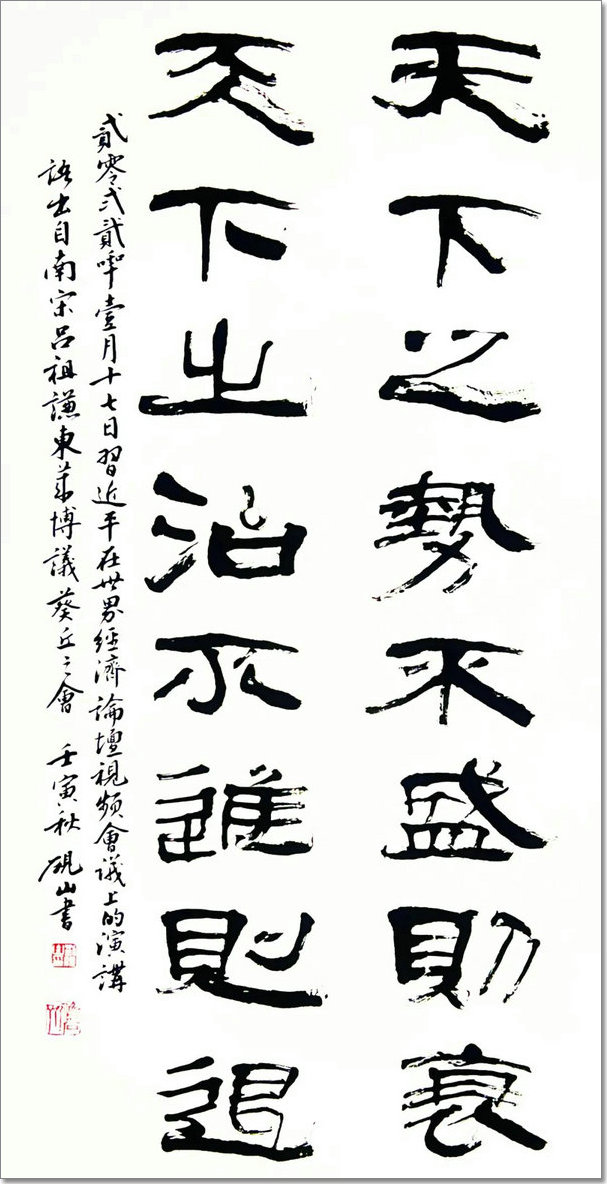 天下之勢不盛則衰
天下之治不進則退
貳零弍貳年壹月十七日習近平在世界經濟論壇視頻會議上的演講
語出自南宋吕祖謙東萊博議葵丘之會 壬寅秋 硯山書